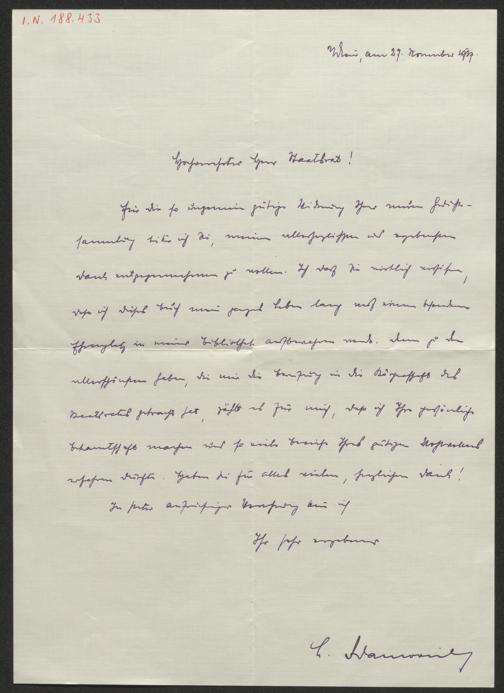 I.N. 188.433
Wien, am 29. November 1937.
Hochverehrter Herr Staatsrat!
Für die so ungemein gütige Widmung Ihrer neuen Gedicht-
sammlung bitte ich Sie, meinen allerherzlichsten und ergebensten
Dank entgegennehmen zu wollen. Ich darf Sie wirklich versichern,
dass ich dieses Buch mein ganzes Leben lang auf einem besonderen
Ehrenplatz in meiner Bibliothek aufbewahren werde. Denn zu den
allerschönsten Gaben, die mir die Berufung in die Körperschaft des
Staatsrates gebracht hat, zählt es für mich, dass ich Ihre persönliche
Bekanntschaft machen und so viele Beweise Ihres gütigen Wohlwollens
erfahren durfte. Haben Sie für alles vielen, herzlichen Dank!
In steter aufrichtiger Verehrung bin ich
Ihr sehr ergebener
L. Adamovich